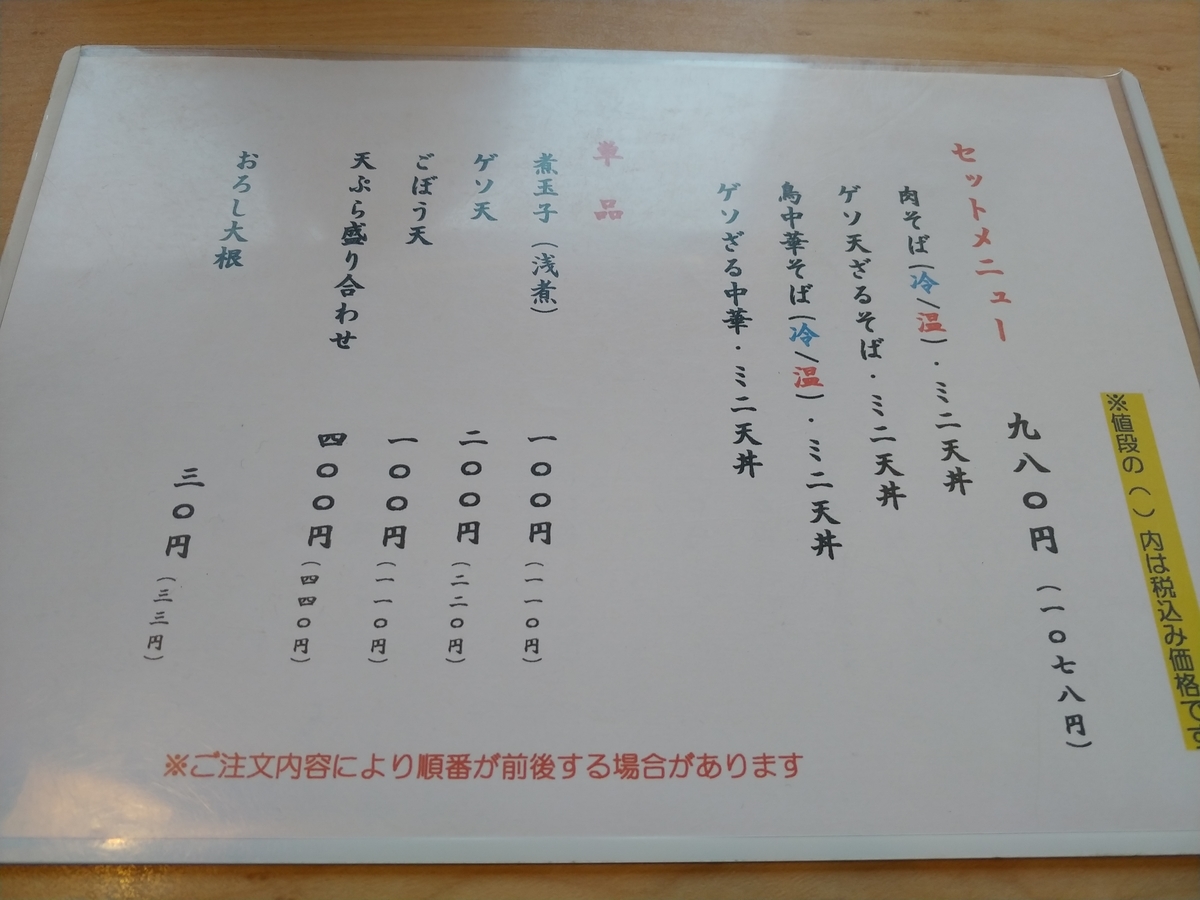 ※値段の（）内は税込み価格です
セットメニュー 九八〇円（一〇七八円）
肉そば（冷/温）・ミニ天丼
ゲソ天ざるそば・ミニ天丼
鳥中華そば（冷/温）・ミニ天丼
ゲソざる中華・ミニ天丼
単品
煮玉子（浅煮） 一〇〇円（一一〇円）
ゲソ天 二〇〇円（二二〇円）
ごぼう天 一〇〇円（一一〇円）
天ぷら盛り合わせ 四〇〇円（四四〇円）
おろし大根 三〇円（三三円）
※ご注文内容により順番が前後する場合があります